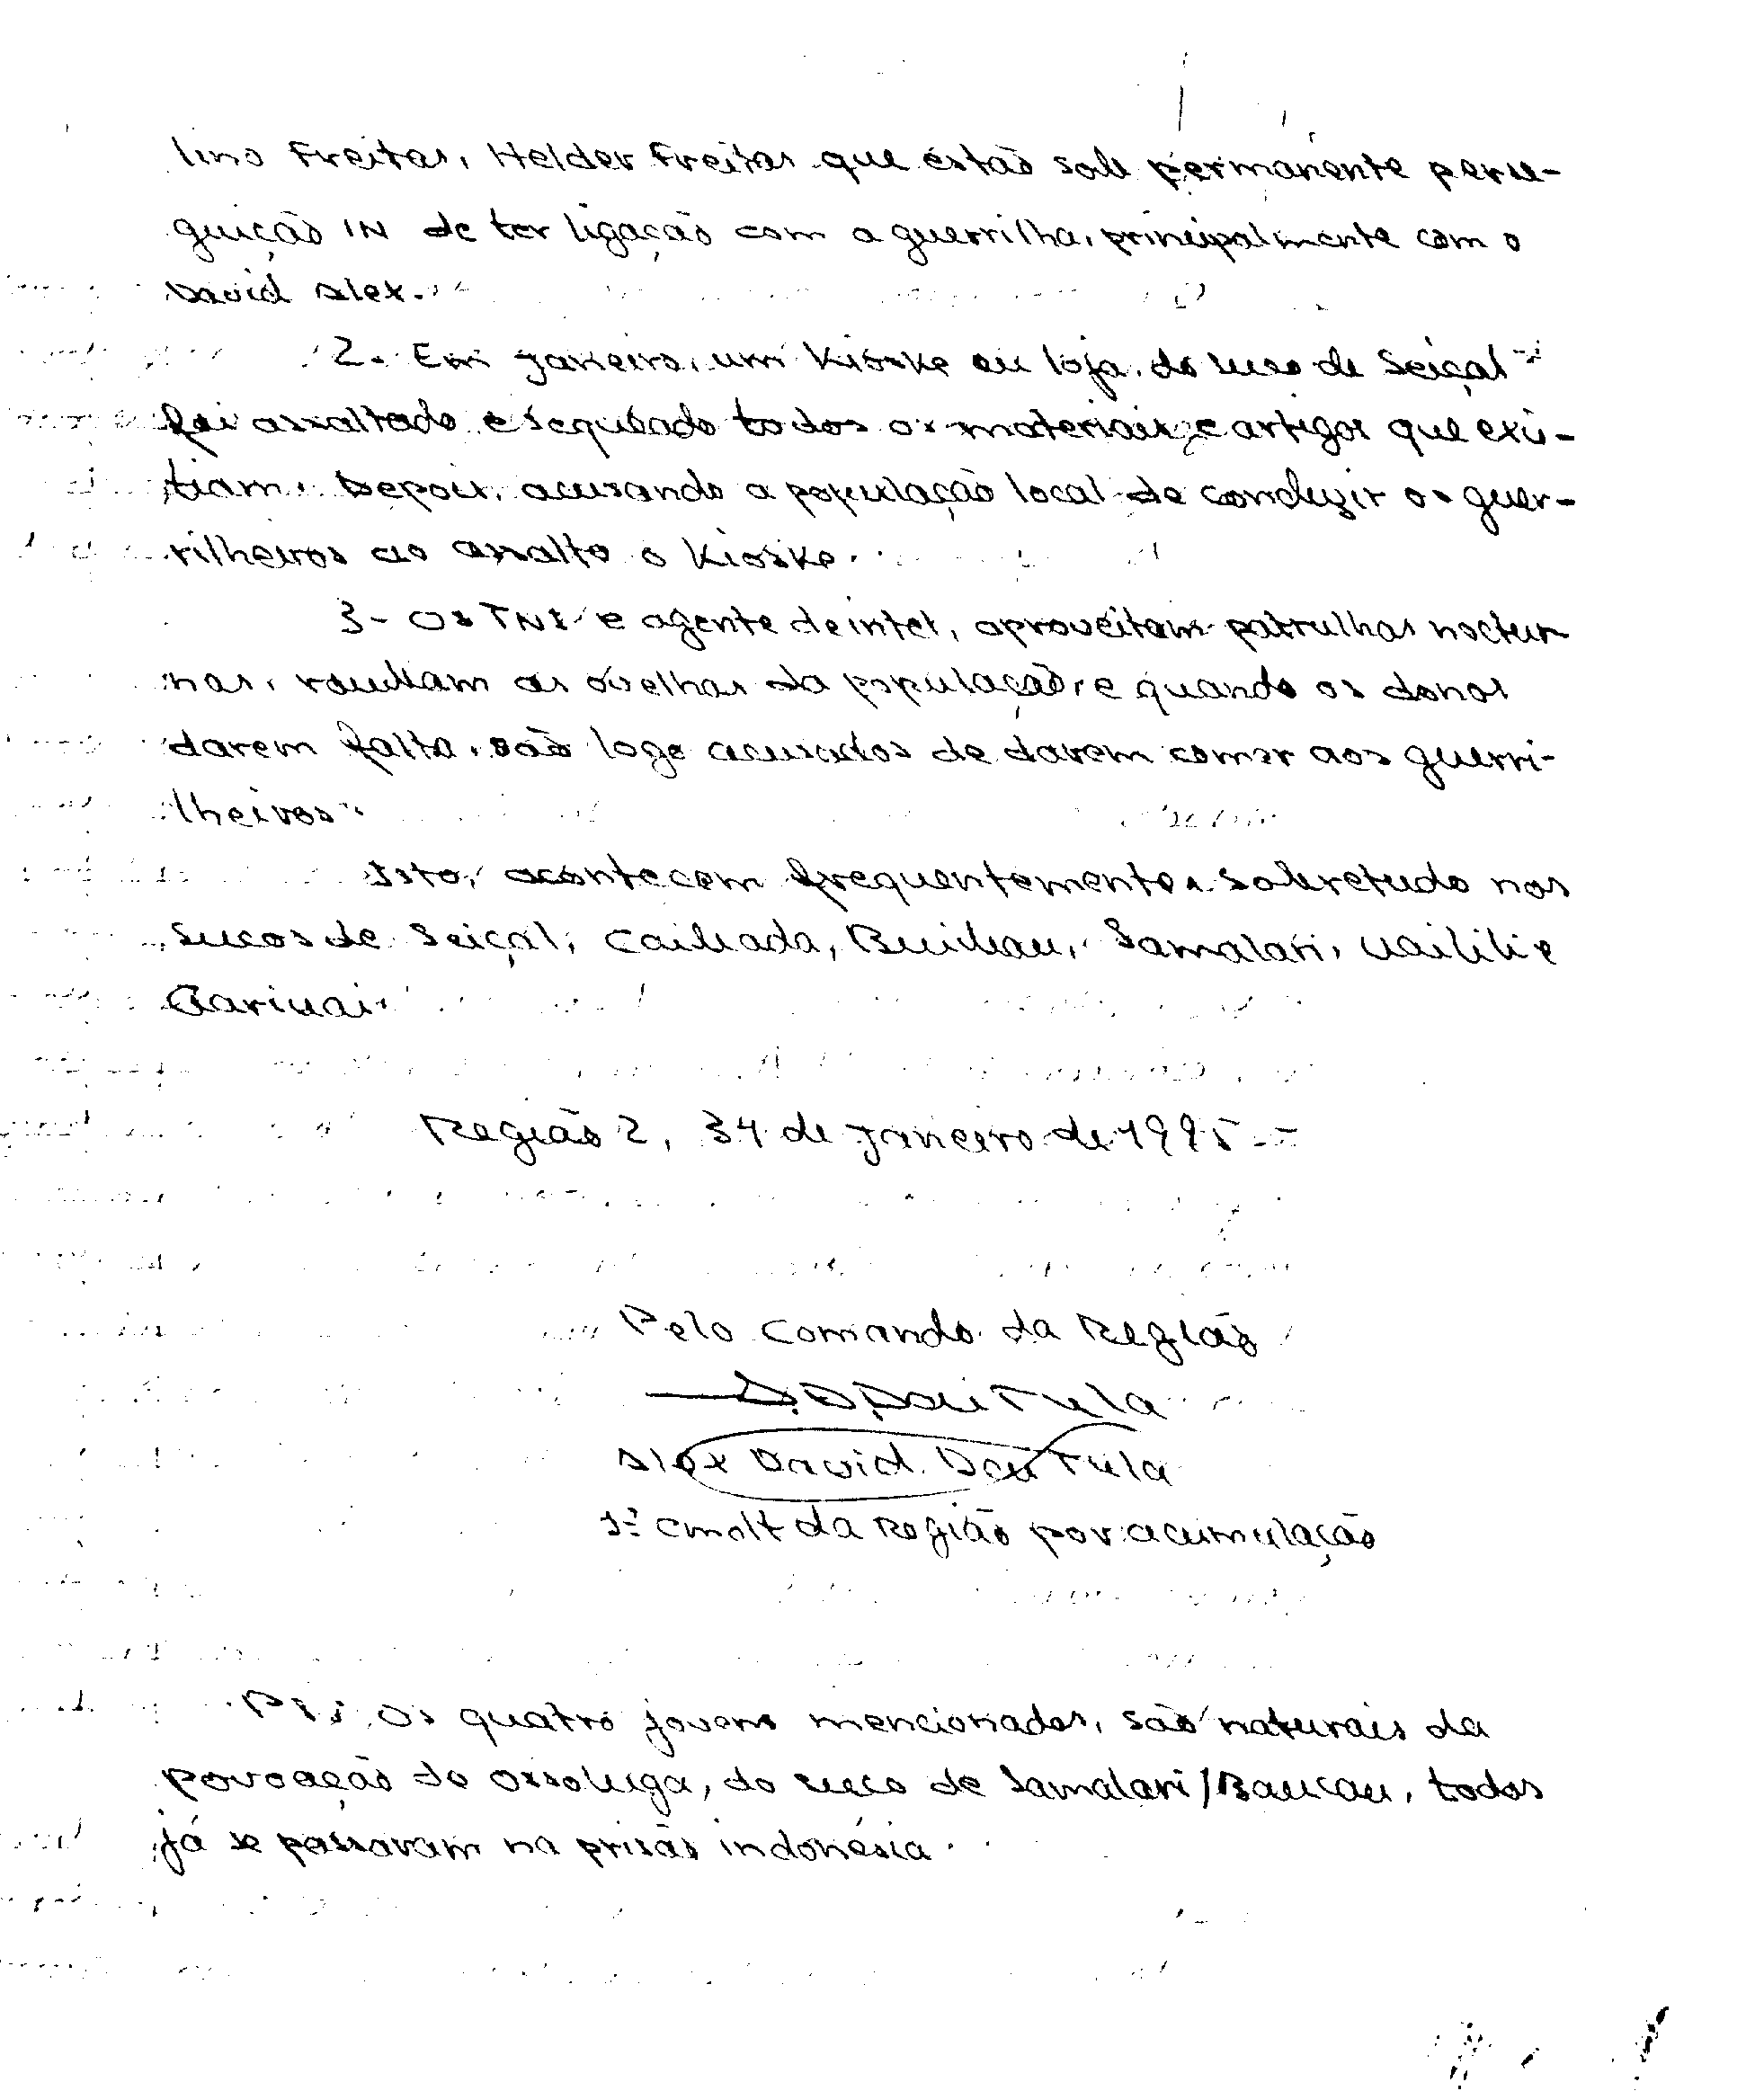 lino Freitas, Helder Freitas que estão sob permanente perse-
guição IN de ter ligação com a guerrilha, principalmente com o
David Alex.
2. Em Janeiro, um Kioske ou loja, do suco de Seiçal
foi assaltado e sequbado todos os materiais e artigos que exis-
tiam. Depois, acusando a população local de conduzir os guer-
rilheiros ao assalto o Kioske.
3- Os TNI e agente de intel, aproveitam patrulhas noctur-
nas, roubam as ovelhas da população, e quando os donos
darem falta, são logo acusados de darem comer aos guerri-
lheiros.
Isto, acontecem frequentemente, sobretudo nos
sucos de Seiçal, Caibada, Buibau, Samalari, Uailili e
Gariuai.
Região 2, 31 de Janeiro de 1995
Pelo Comando da Região
Alex David Dau Tula
1º Cmdt da Região por acumulação
PS: Os quatro jovens mencionados, são naturais da
povoação de Ossoluga, do suco de Samalari/Baucau, todos
já se passaram na prisão indonésia.